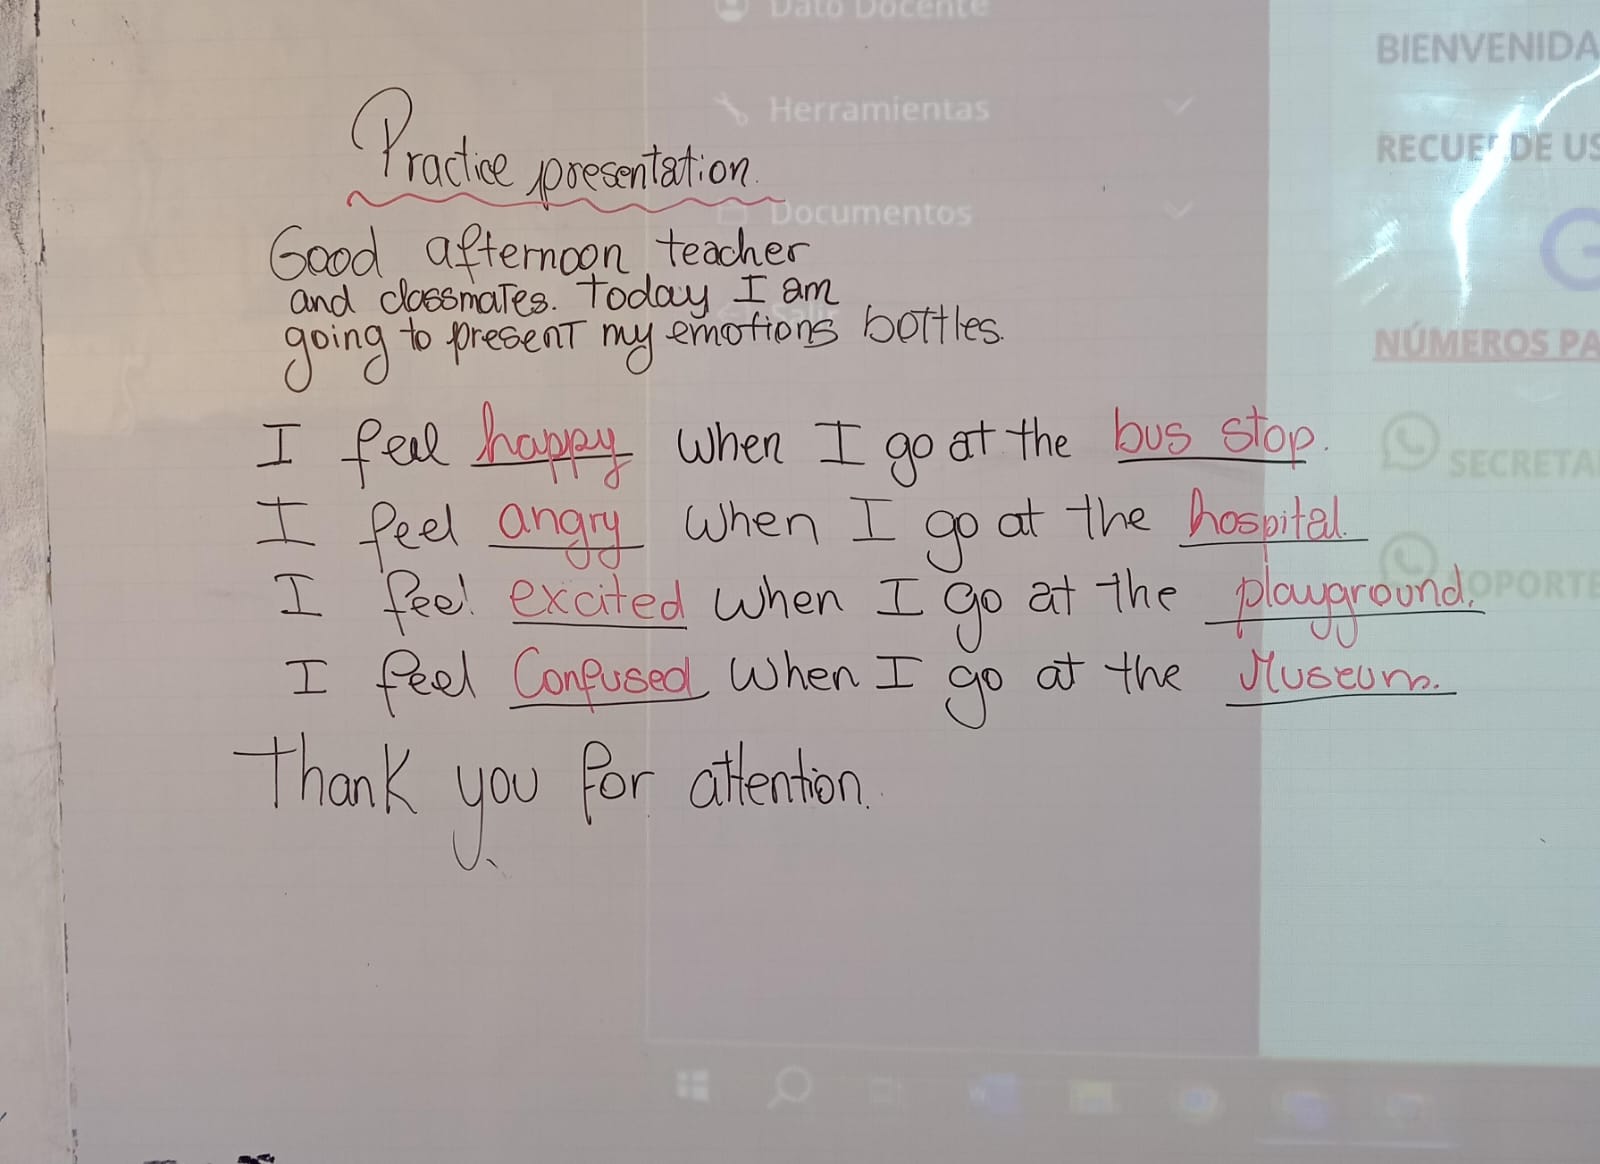 Practice presentation.
Good afternoon teacher
and classmates. Today I am
going to present my emotions bottles.
I feel happy when I go at the bus stop.
I feel angry when I go at the hospital.
I feel excited when I go at the playground.
I feel Confused when I go at the Museum.
Thank you for attention.
Dato Docente
Herramientas
Documentos
Salir
BIENVENIDA
RECUERDE US
G
NÚMEROS PA
SECRETA
SOPORTE